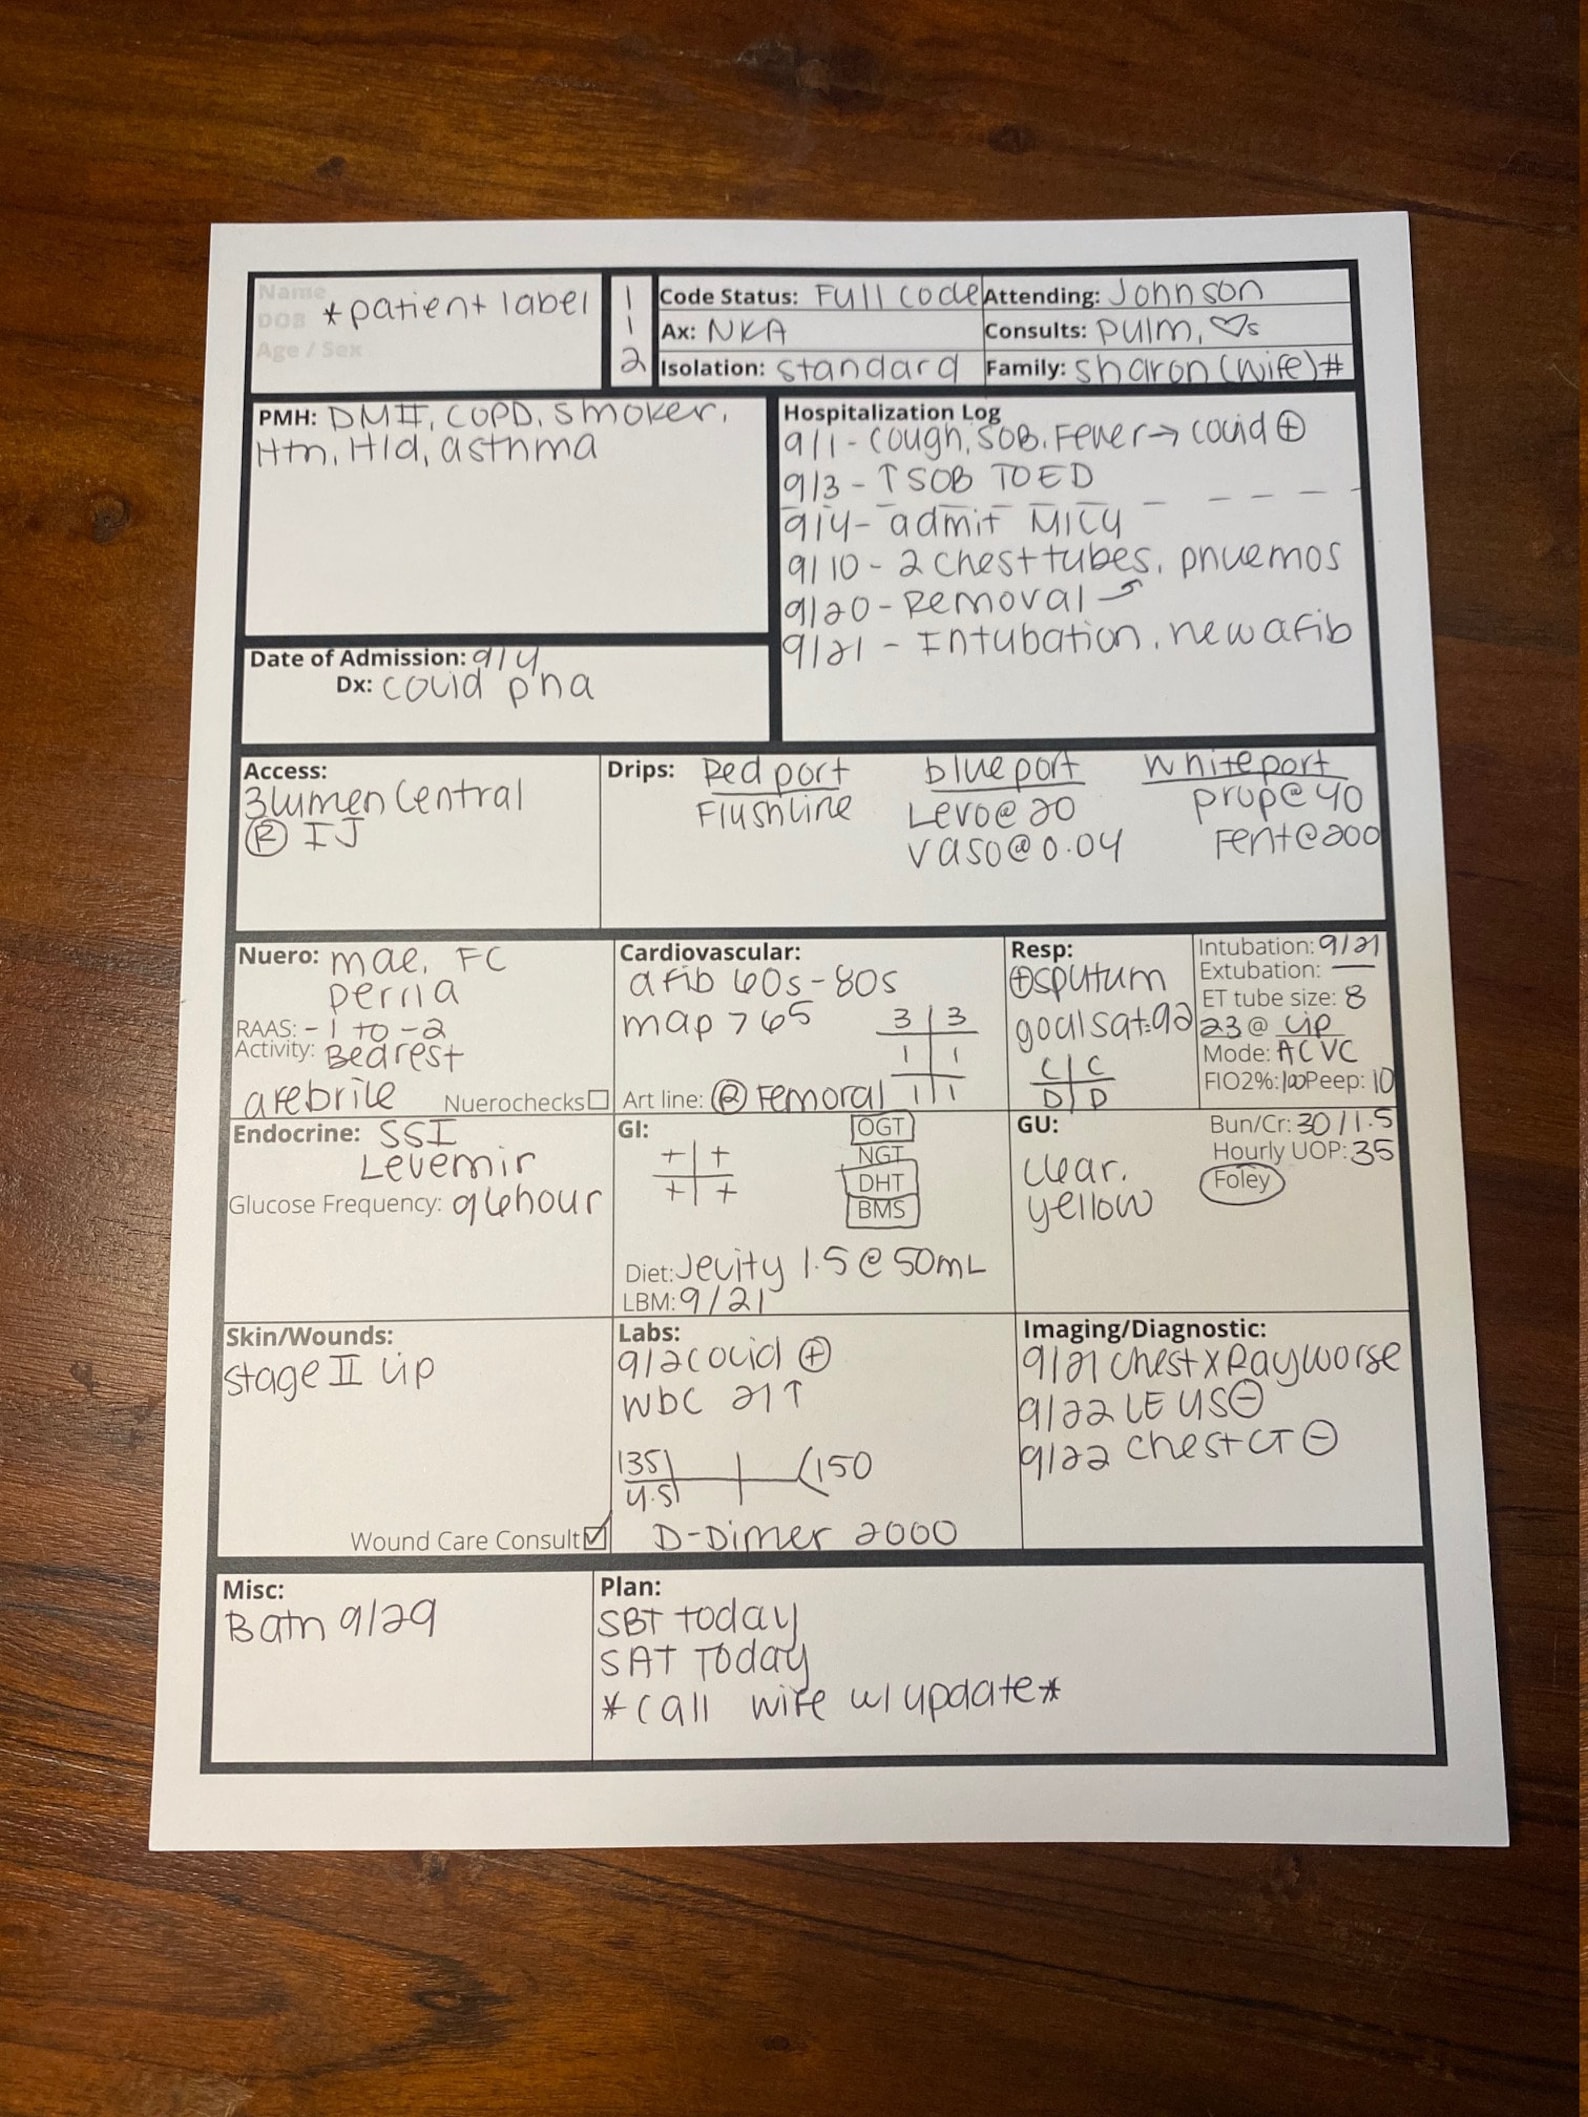 Name
DOB
Age / Sex
*patient label
1
1
2
Code Status: Full code
Attending: Johnson
Ax: NKA
Consults: pulm, ♡s
Isolation: standard
Family: sharon (wife) #
PMH: DM II, COPD, smoker,
Htn, Hld, asthma
Hospitalization Log
9/1 - cough, SOB, Fever → covid ⊕
9/3 - ↑ SOB TO ED
9/4 - admit MICU
9/10 - 2 chest tubes, pnuemos
9/20 - Removal
9/21 - Intubation, new afib
Date of Admission: 9/4
Dx: covid pna
Access:
3 lumen Central
Ⓡ IJ
Drips:
Red port
Flushline
blue port
Levo @ 20
vaso @ 0.04
White port
prop @ 40
Fent @ 200
Nuero: mae, FC
perrla
RAAS: -1 to -2
Activity: Bedrest
afebrile
Nuerochecks ☐
Cardiovascular:
afib 60s - 80s
map > 65
3 | 3
1 | 1
1 | 1
Art line: Ⓡ Femoral
Resp:
⊕ sputum
goal sat: 92
C | C
D | D
Intubation: 9/21
Extubation: —
ET tube size: 8
23 @ lip
Mode: AC VC
FIO2%: 100 Peep: 10
Endocrine: SSI
Levemir
Glucose Frequency: q6hour
GI:
+ | +
+ | +
OGT
NGT
DHT
BMS
Diet: Jevity 1.5 @ 50mL
LBM: 9/21
GU:
clear,
yellow
Bun/Cr: 30/1.5
Hourly UOP: 35
Foley
Skin/Wounds:
stage II lip
Wound Care Consult ☑
Labs:
9/2 covid ⊕
WBC 21 ↑
135
4.5
150
D-Dimer 2000
Imaging/Diagnostic:
9/21 chest x Ray worse
9/22 LE US ⊖
9/22 chest CT ⊖
Misc:
Bath 9/29
Plan:
SBT today
SAT Today
*call wife w/ update*